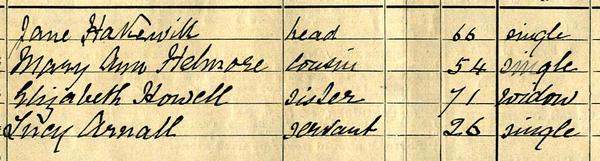 Jane Hakewill head 66 single
Mary Ann Helmore cousin 54 single
Elizabeth Howell sister 71 widow
Lucy Arnall servant 26 single